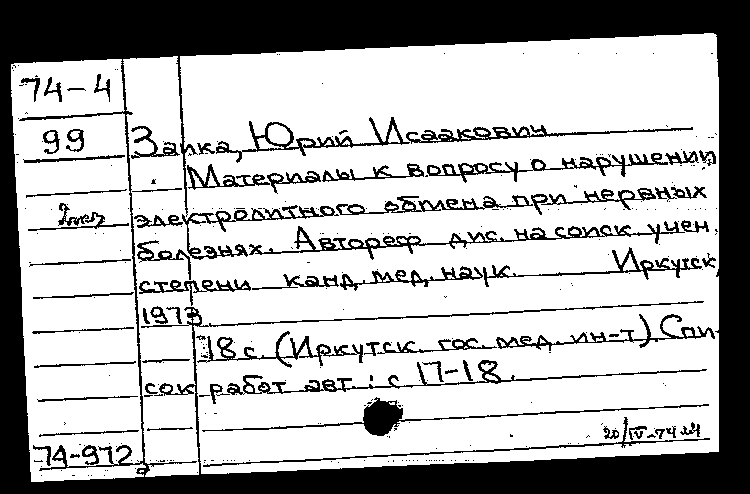 74-4
99
Заика, Юрий Исаакович
Материалы к вопросу о нарушении
электролитного обмена при нервных
болезнях. Автореф дис. на соиск. учен.
степени канд. мед. наук. Иркутск,
1973.
18 с. (Иркутск. гос. мед. ин-т). Спи-
сок работ авт.: с 17-18.
20/IV-74
74-972